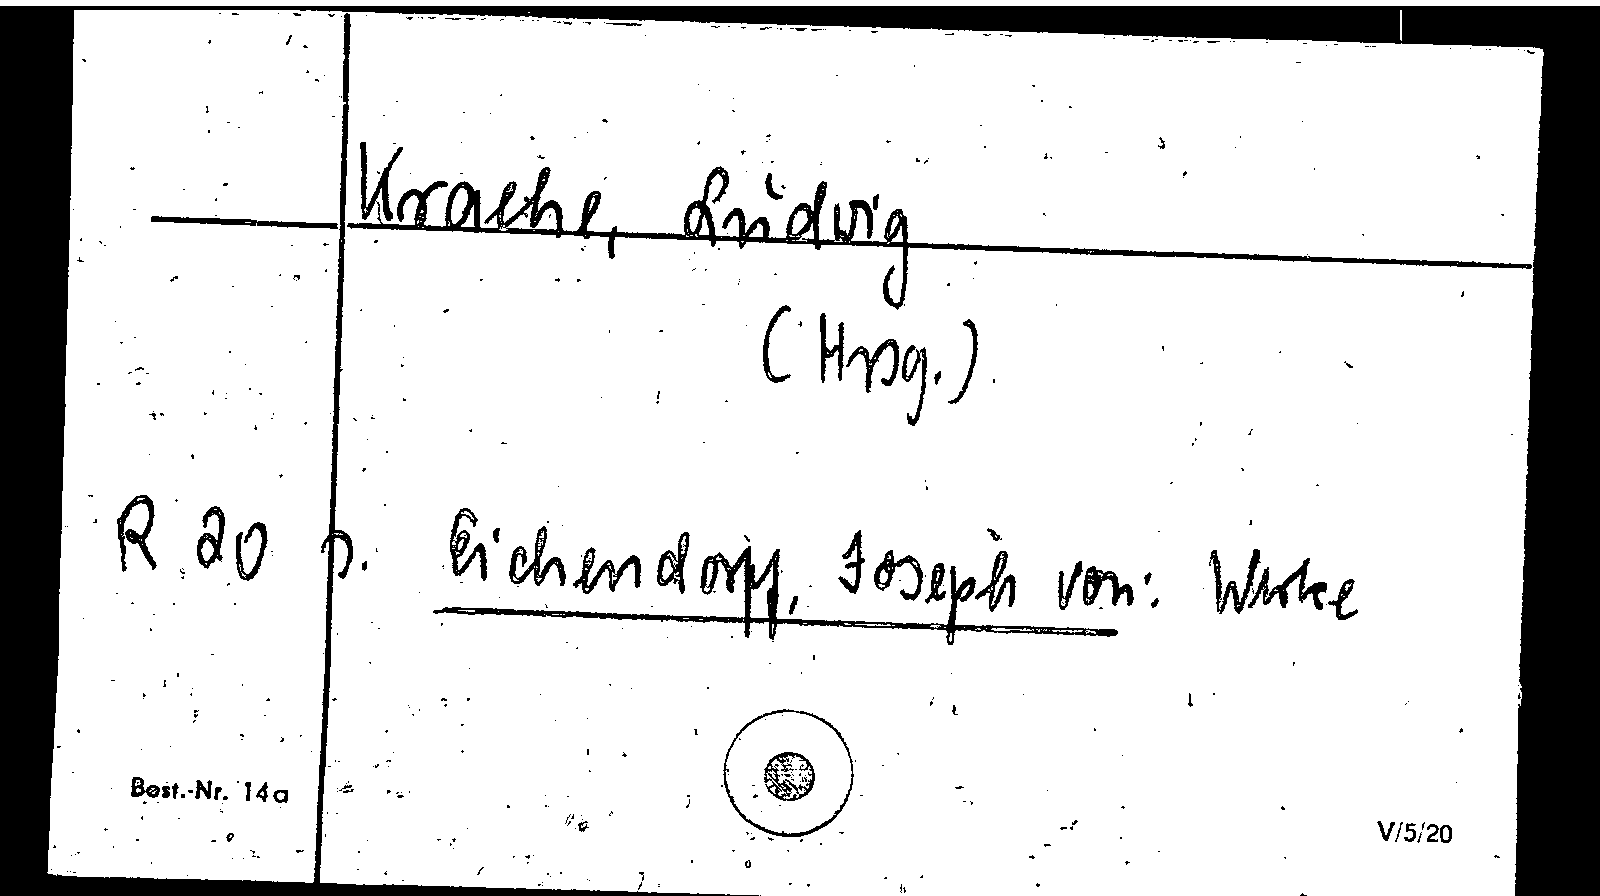 Kraehe, Ludwig
(Hrsg.)
R 20 s. Eichendorff, Joseph von: Werke
Best.-Nr. 14a
V/5/20